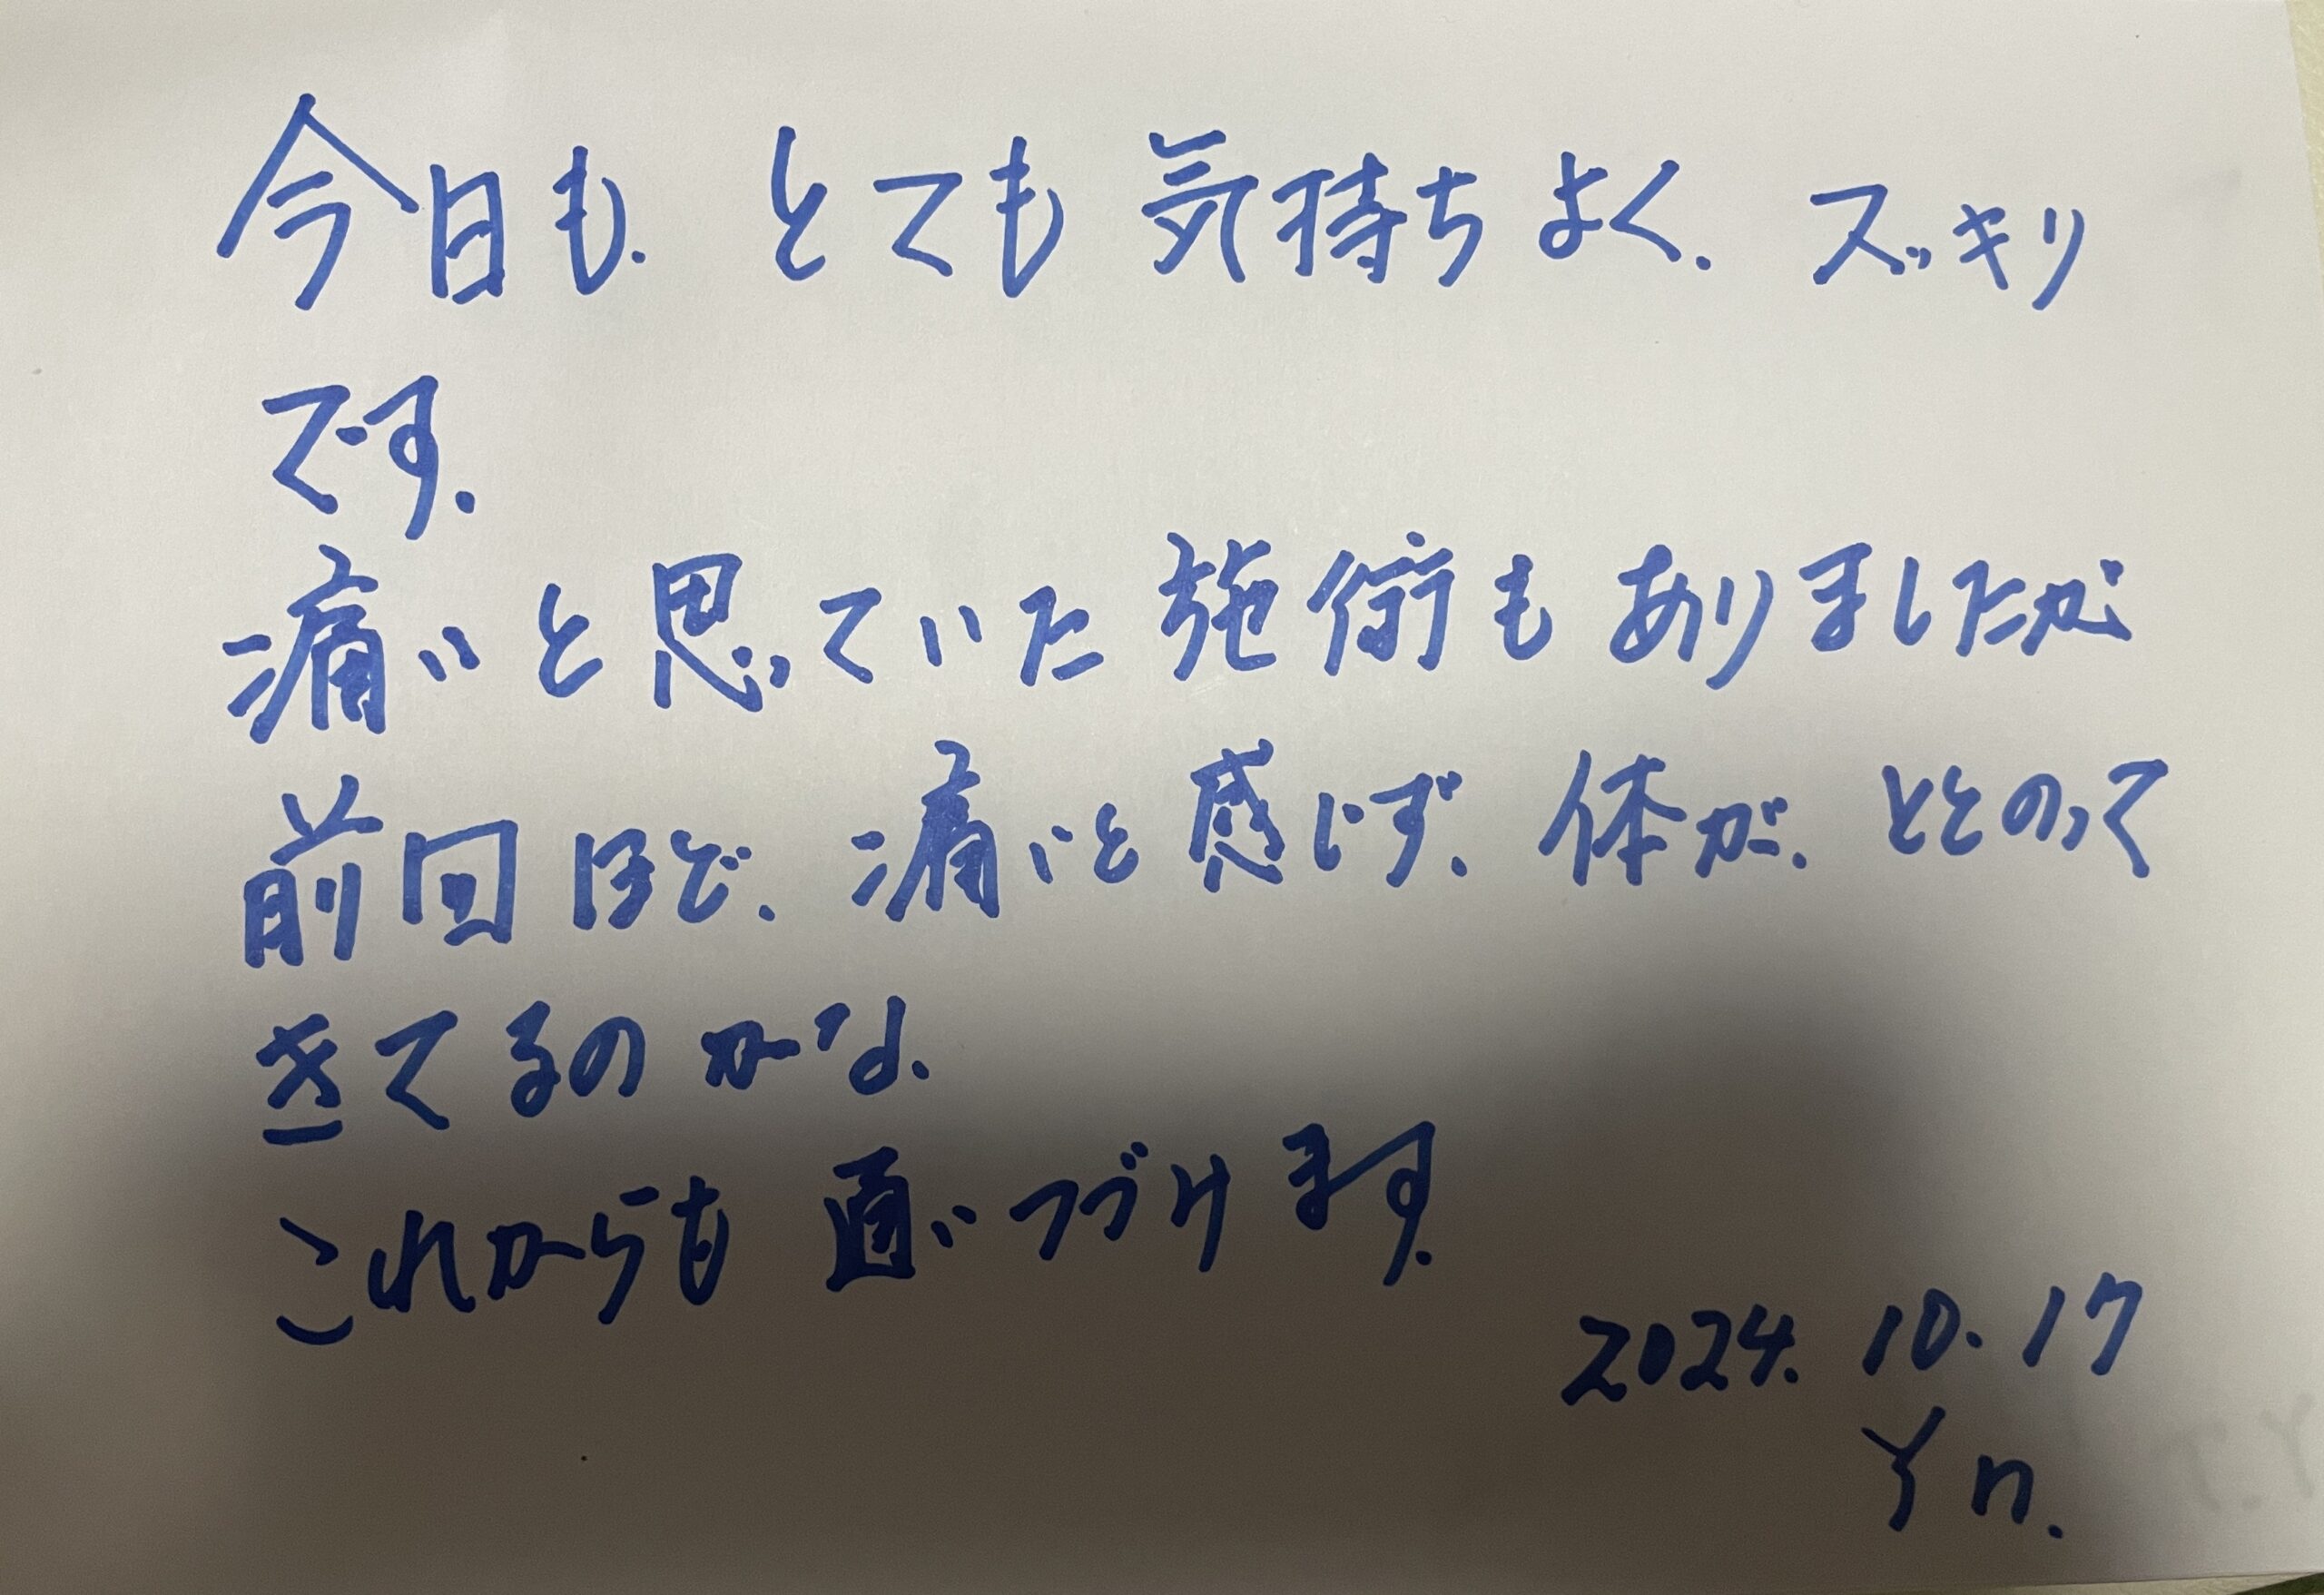 今日も、とても気持ちよく、スッキリ
です。
痛いと思っていた施術もありましたが
前回ほど、痛いと感じず、体が、ととのって
きてるのかな。
これからも通いつづけます。
2024. 10. 17
Y n.